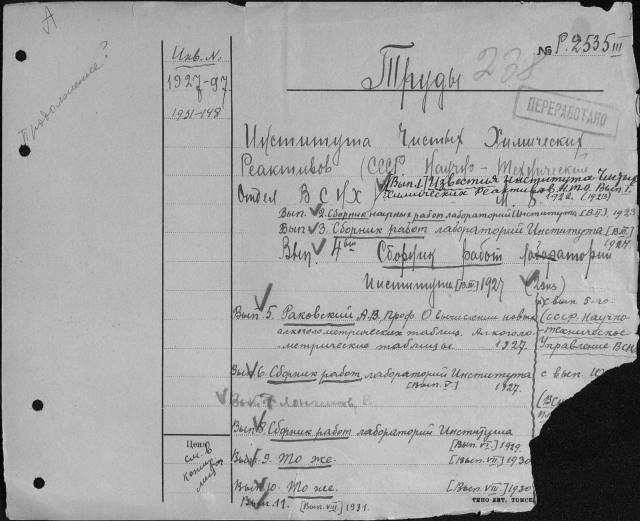 А
Продолжение?
Инв. №
1927-97
1931-148
№ Р.2535 III
Труды
238
ПЕРЕРАБОТАНО
Института Чистых Химических
Реактивов (СССР. Научно-Технический
Отдел ВСНХ
[Вып. 1.] Известия Института Чистых
Химических Реактивов. Вып. 1.
1922. (1923)
Вып. 2. Сборник научных работ лабораторий Института [В.II] 1923
Вып. 3. Сборник работ лабораторий Института [В.III]
1924.
Вып. 4ый Сборник работ лабораторий
Института 1927 (2 экз)
Вып 5. Раковский А.В, Проф. О вычислении новых
алкоголометрических таблиц. Алкоголо-
метрические таблицы. 1927.
с вып. 5-го
(СССР. Научно-
техническое
Управление ВСН
Вып 6. Сборник работ лабораторий Института
[Вып. V.] 1927.
с вып.
Вып 7
Вып 8. Сборник работ лабораторий Института
[Вып. VI.] 1929
Вып. 9. То же. [Вып. VII] 1930
Вып. 10. То же. [Вып. VIII] 1930
Вып. 11. [Вып. VIII] 1931.
Цена
см. в
конце
ТИПО-ЛИТ. ТОМСК